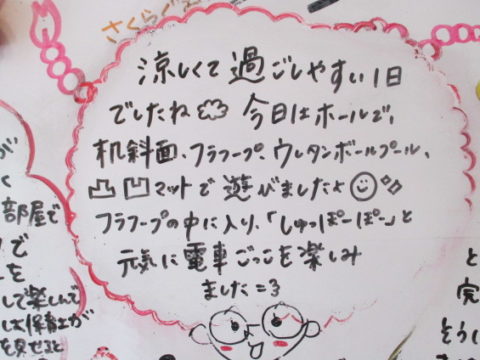 さくらぐ
涼しくて過ごしやすい1日
でしたね 今日はホールで、
机斜面、フラフープ、ウレタンボールプール、
凸凹マットで遊びましたよ
フラフープの中に入り、「しゅっぽーぽー」と
元気に電車ごっこを楽しみ
ました=3
が
く
部屋で
で
を
して楽しんで
した保育士が
を見せると
と
完
そうに